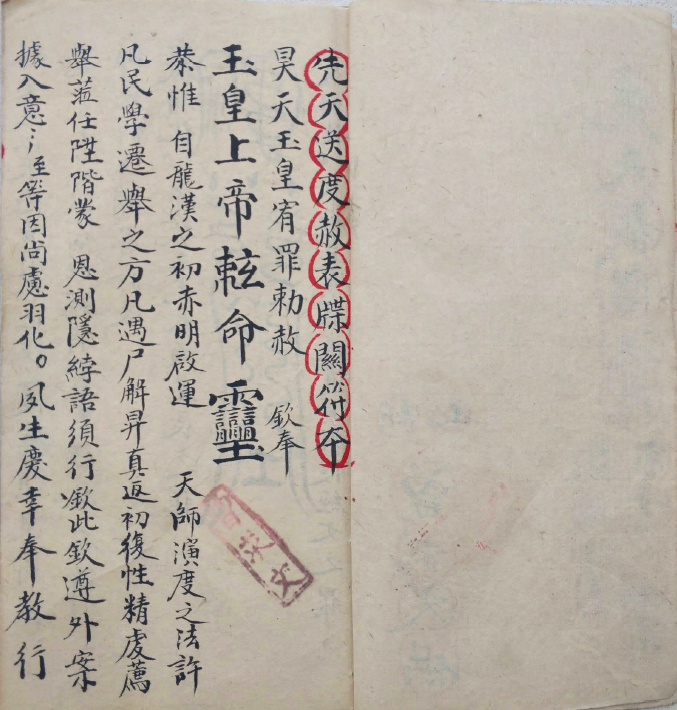 先天送度赦表牒關符本
昊天玉皇宥罪勅赦 欽奉
玉皇上帝鉉命靈
恭惟 自龍漢之初赤明啟運 天師演度之法許
凡民學遷舉之方凡遇尸解昇真返初復性精虔薦
舉蒞任陞階蒙 恩測隱綍語須行欽此欽遵外案
據入意〻至等因尚慮羽化〇夙生慶幸奉教行